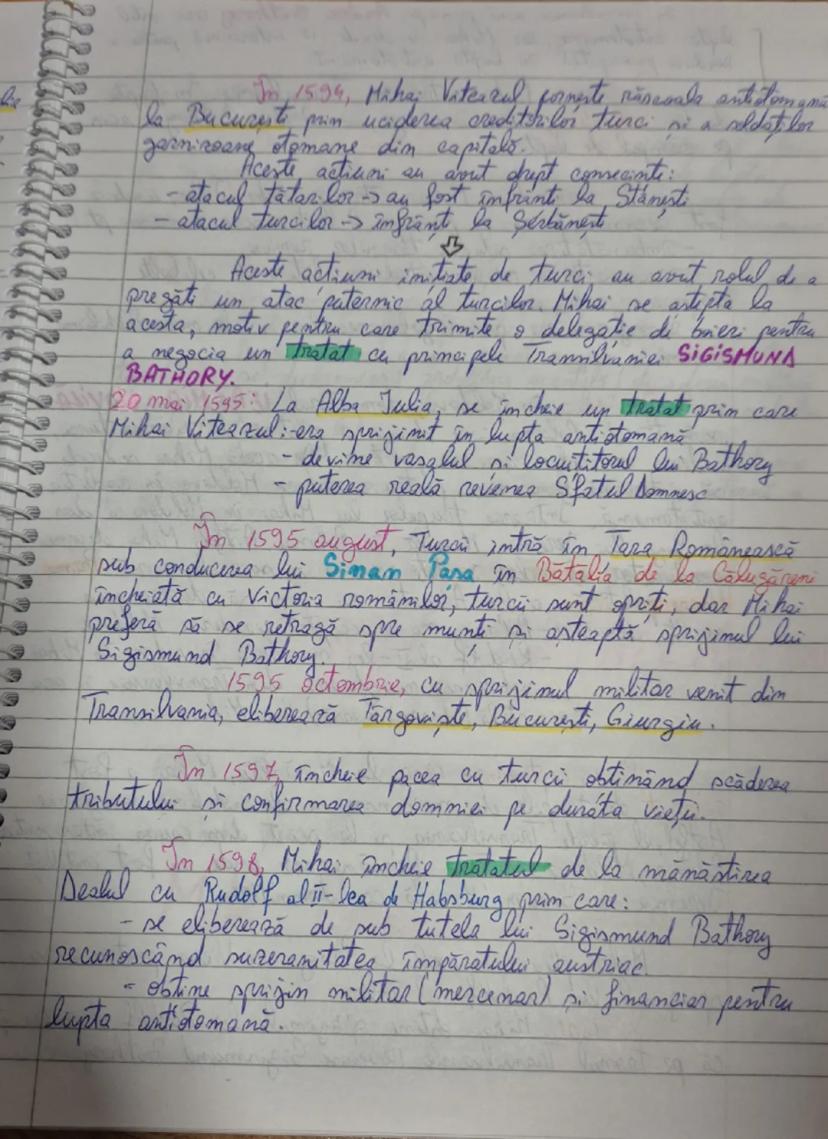 În 1594, Mihai Viteazul pornește răscoala antiotomană
la București prin uciderea creditorilor turci și a soldaților
garnizoanei otomane din capitală.
Aceste acțiuni au avut drept consecințe:
- atacul tătarilor -> au fost înfrînți la Stănești
- atacul turcilor -> înfrânți la Șerbănești
⇩
Aceste acțiuni inițiate de turci au avut rolul de a
pregăti un atac puternic al turcilor. Mihai se aștepta la
acesta, motiv pentru care trimite o delegație de boieri pentru
a negocia un tratat cu principele Transilvaniei SIGISMUND
BATHORY.
20 mai 1595: La Alba Iulia, se încheie un tratat prin care
Mihai Viteazul: -era sprijinit în lupta antiotomană
- devine vasalul și locuitorul lui Bathory
- puterea reală revenea Sfatul Domnesc
În 1595 august, Turcii intră în Țara Românească
sub conducerea lui Sinan Pașa în Bătălia de la Călugăreni
încheiată cu Victoria românilor, turcii sunt opriți, dar Mihai
preferă să se retragă spre munți și așteaptă sprijinul lui
Sigismund Bathory.
1595 octombrie, cu sprijinul militar venit din
Transilvania, eliberează Târgoviște, București, Giurgiu.
În 1597, încheie pacea cu turcii obținând scăderea
tributului și confirmarea domniei pe durata vieții.
În 1598, Mihai încheie tratatul de la mănăstirea
Dealul cu Rudolf al II-lea de Habsburg prin care:
- se eliberează de sub tutela lui Sigismund Bathory
recunoscând suzeranitatea împăratului austriac.
- obține sprijin militar (mercenari) și financiar pentru
lupta antiotomană.